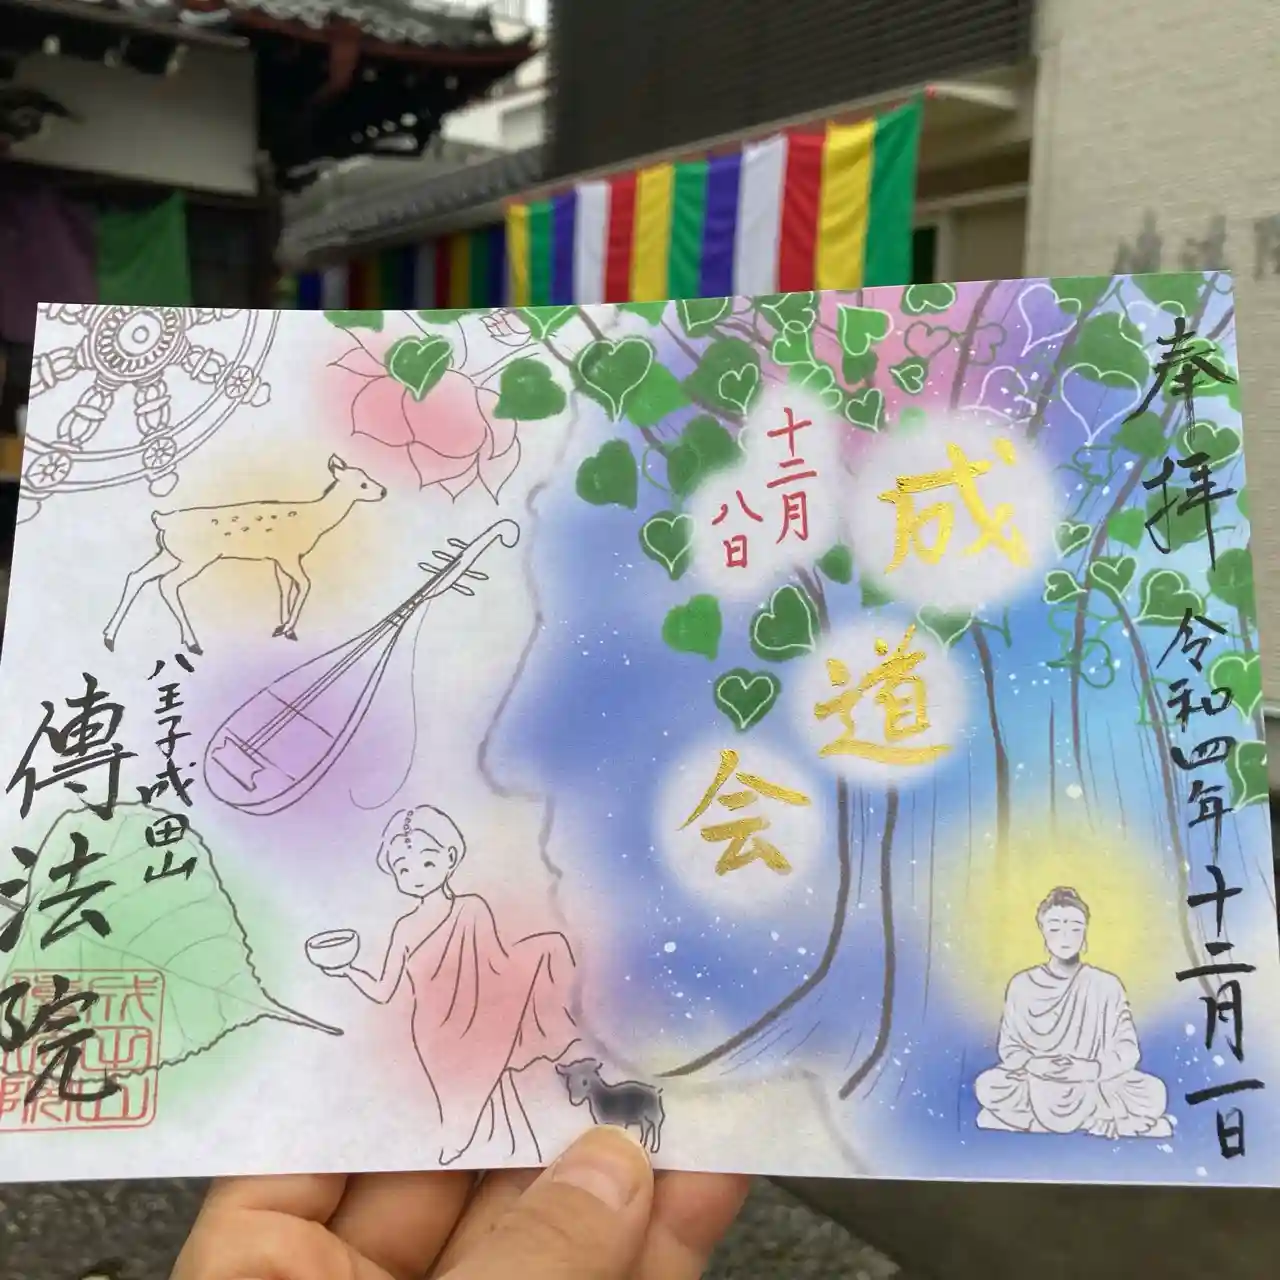 奉拝
令和四年十二月一日
成道会
十二月
八日
八王子成田山
傳法院